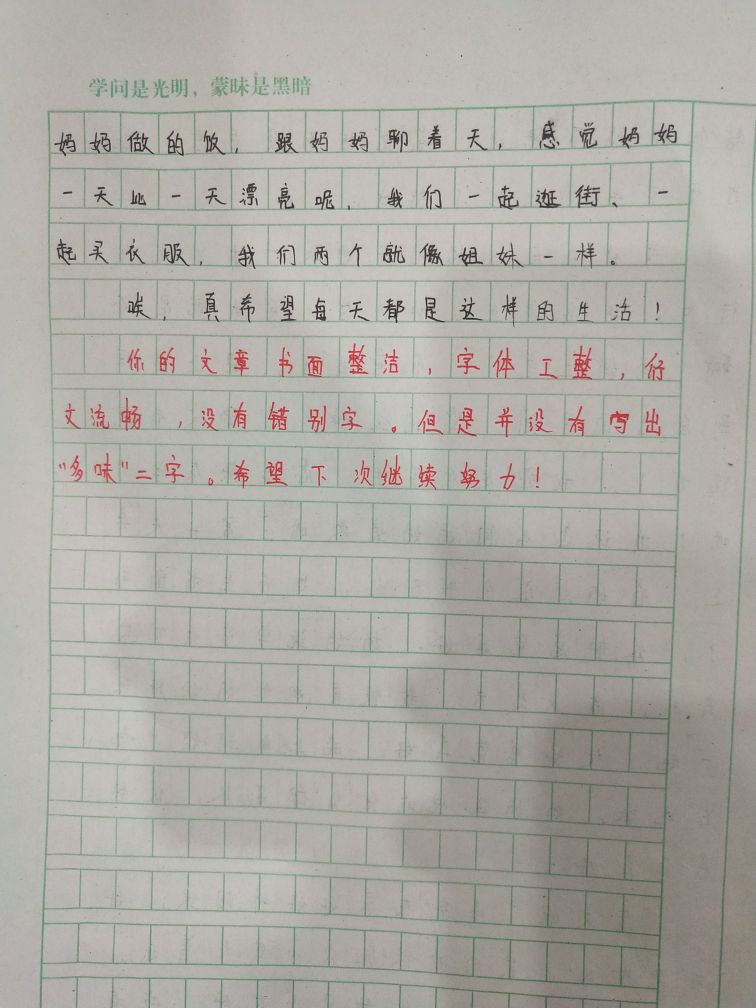 学问是光明，蒙昧是黑暗
妈妈做的饭，跟妈妈聊着天，感觉妈妈
一天比一天漂亮呢，我们一起逛街、一
起买衣服，我们两个就像姐妹一样。
唉，真希望每天都是这样的生活！
你的文章书面整洁，字体工整，行
文流畅，没有错别字。但是并没有写出
“多味”二字。希望下次继续努力！